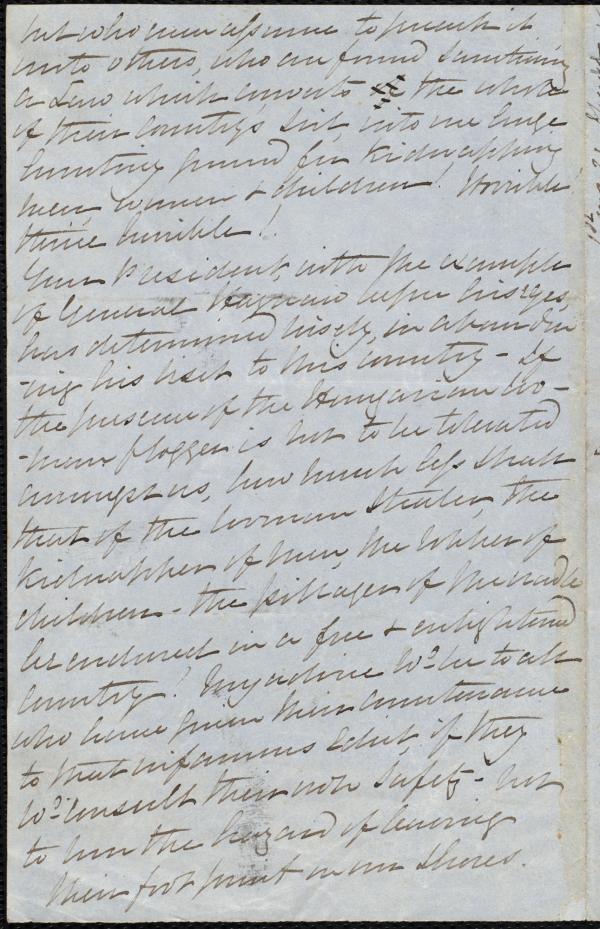 but who even assume to preach it
unto others, who are found sanctioning
a Law which converts the whole
of their Country's soil, into one huge
hunting ground for kidnapping
men, women & children! Horrible!
thrice horrible!
Your President, with the example
of General Haynau before his eyes,
has determined wisely, in abandon
-ing his visit to this country - If
the presence of the Hungarian Wo-
-man flogger is not to be tolerated
amongst us, how much less shall
that of the woman stealer, the
kidnapper of men, the robber of
children - the pillager of the cradle
be endured in a free & enlightened
country! My advice wd. be to all
who have given their countenance
to that infamous Edict, if they
wd. consult their own safety - not
to run the hazard of leaving
their foot print on our shores.